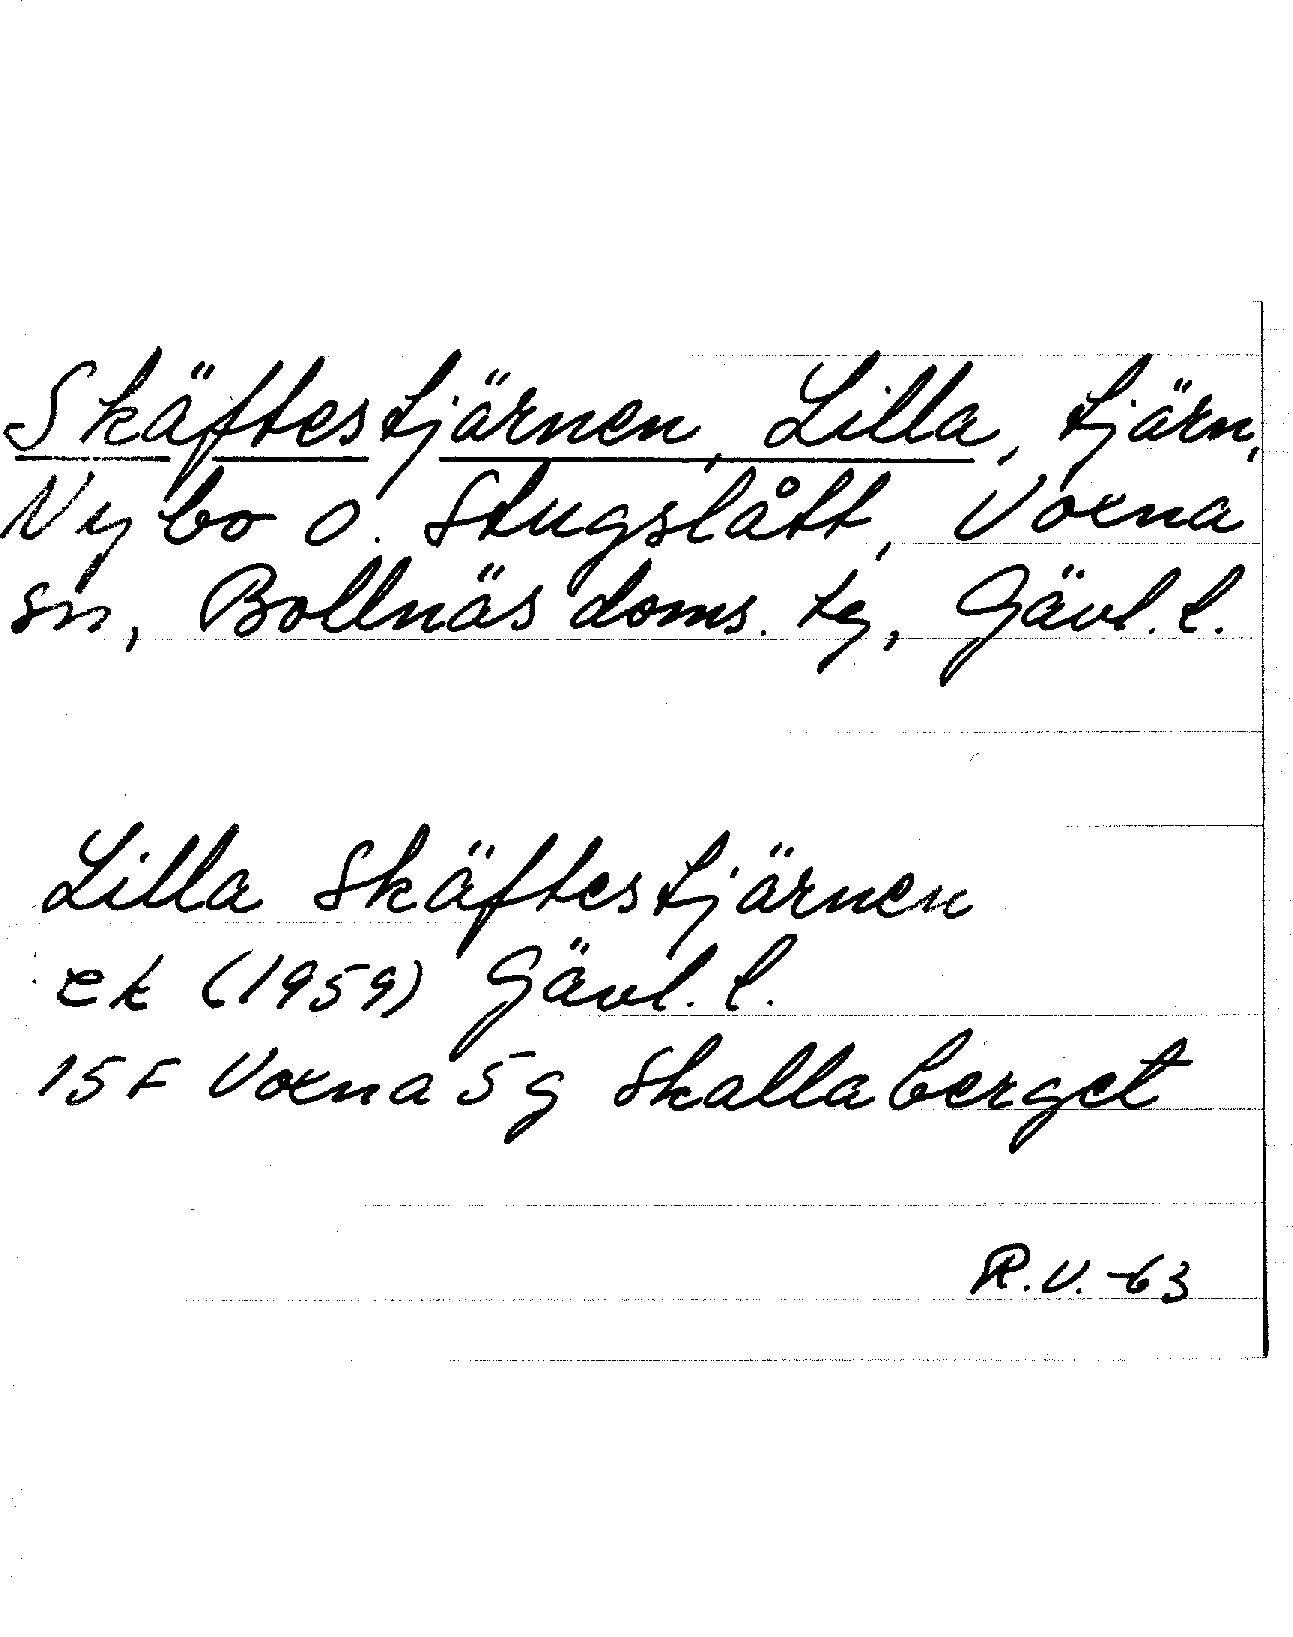 Skäftestjärnen, Lilla, tjärn,
Nybo o. Stugslått, Voxna
sn, Bollnäs doms. tg, Gävl. l.
Lilla Skäftestjärnen
ek (1959) Gävl. l.
15F Voxna 5g Skallaberget
R.V. -63